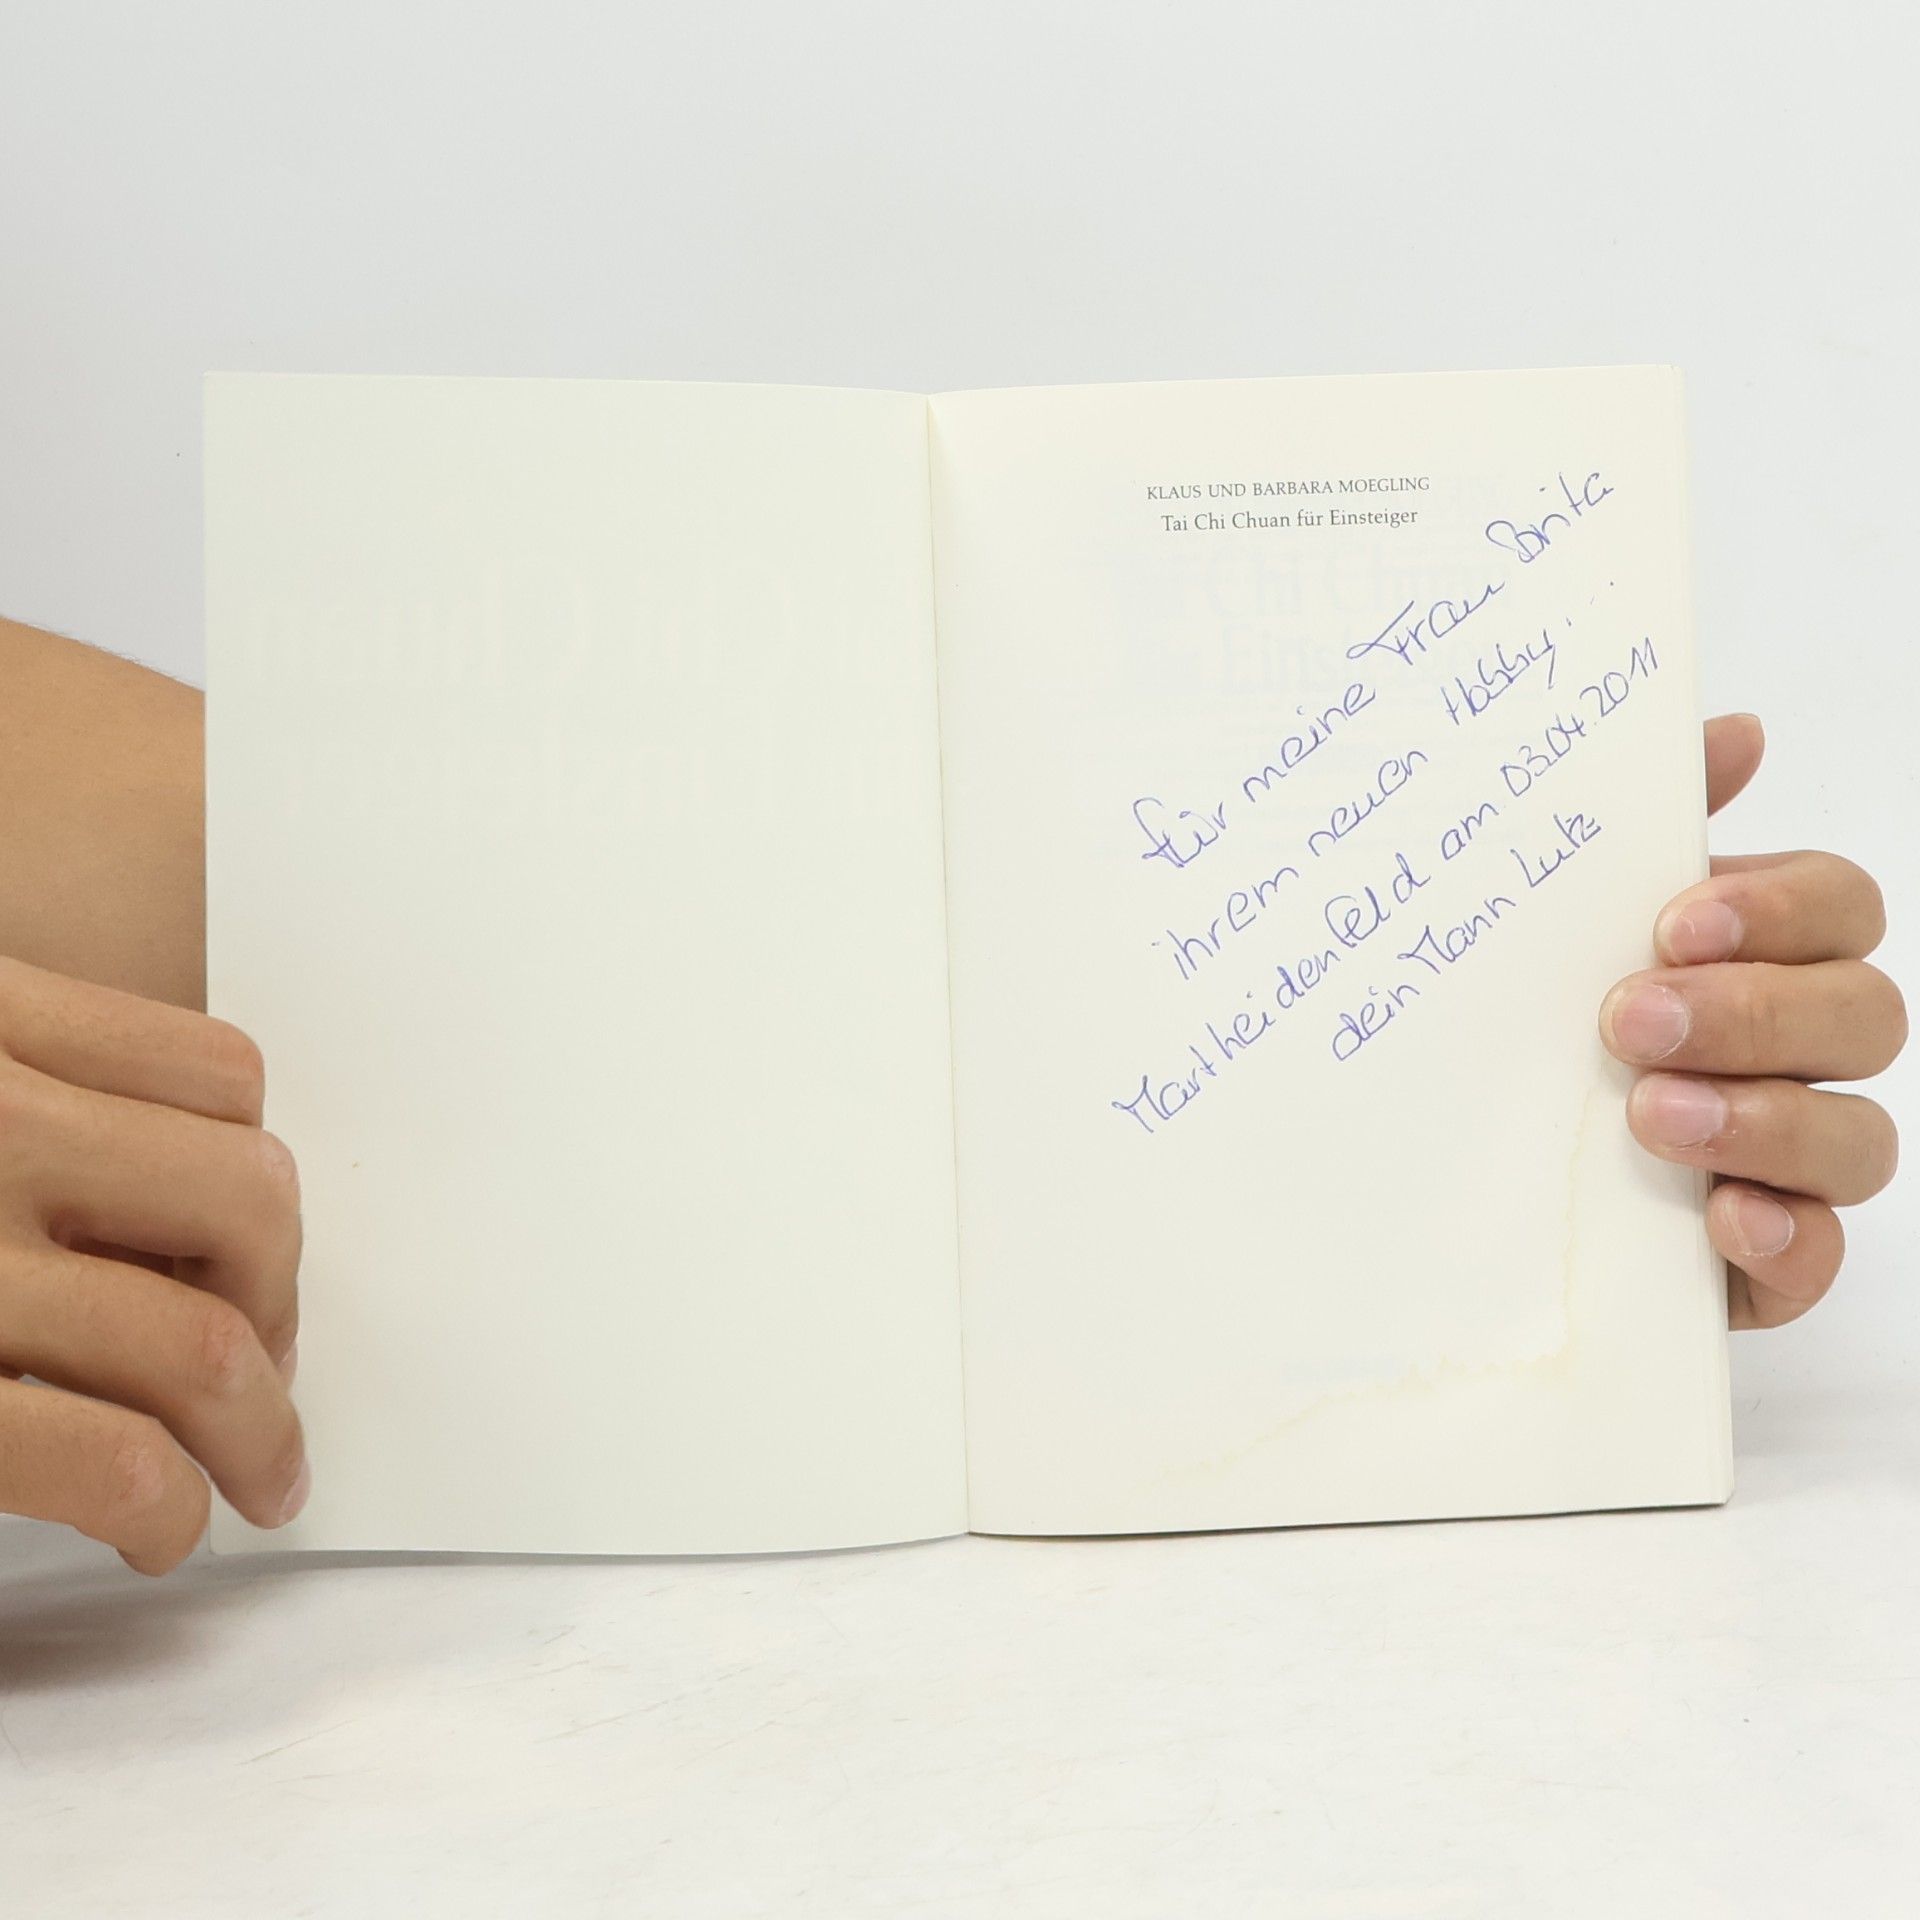 KLAUS UND BARBARA MOEGLING
Tai Chi Chuan für Einsteiger
für meine Frau Brita
ihrem neuen Hobby...
Martheidenfeld am 03.04.2011
dein Mann Lutz